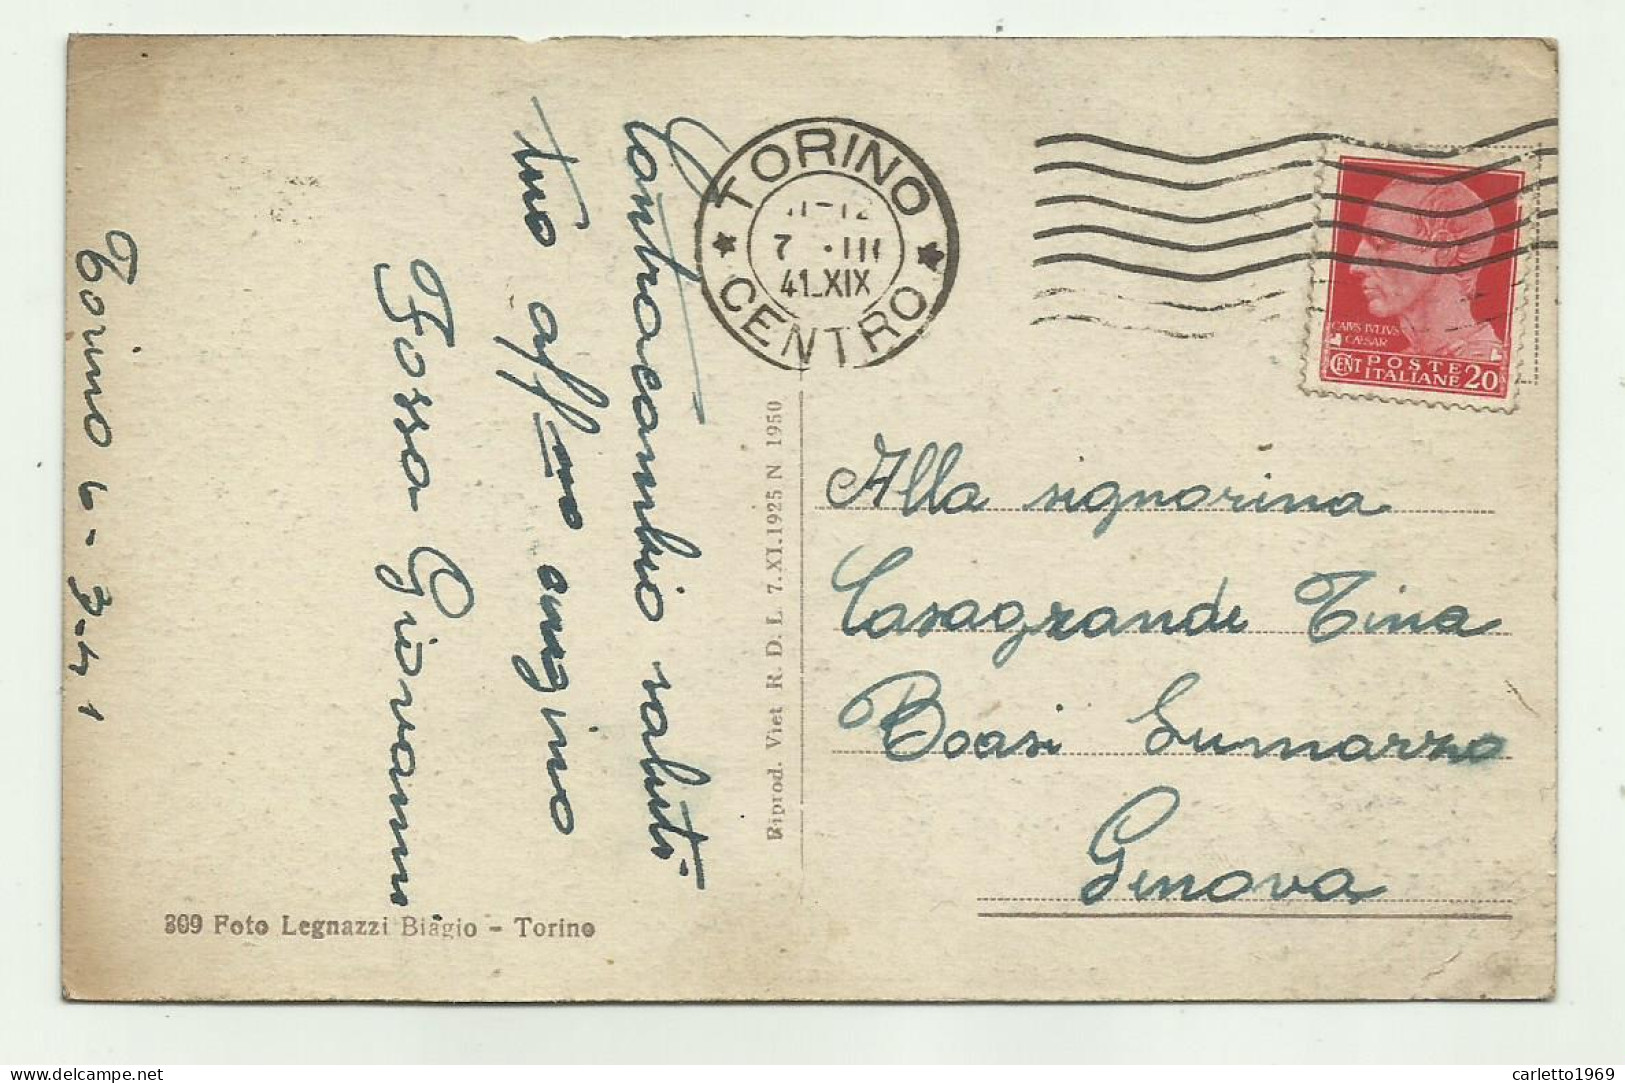 Torino 6-3-41
Contraccambio saluti
tuo aff.mo cugino
Fossa Giovanni
809 Foto Legnazzi Biagio - Torino
Riprod. Viet R. D. L. 7.XI.1925 N 1950
TORINO
11-12
7 . III
41_XIX
CENTRO
CAIVS IVLIVS
CAESAR
CENT POSTE
ITALIANE 20
Alla signorina
Casagrande Tina
Boasi
Genova
delcampe.net
carletto1969